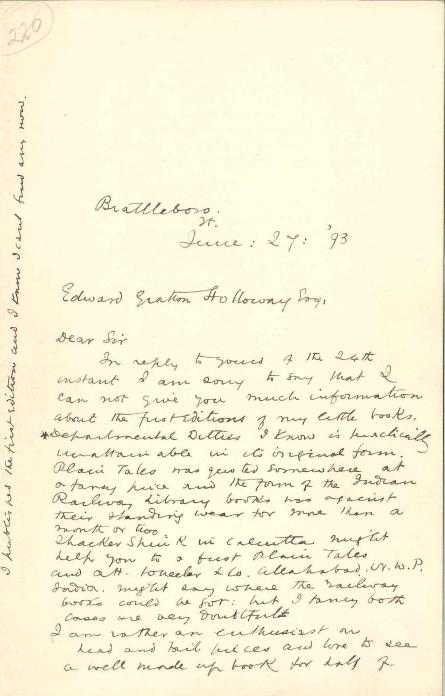 220
Brattleboro.
Vt.
June: 27: '93
Edward Gratton Holloway Esq:
Dear Sir
In reply to yours of the 24th
instant I am sorry to say that I
can not give you much information
about the first editions of my little books.
*Departmental Ditties I know is practically
unattainable in its original form.
Plain Tales was quoted somewhere at
a fancy price and the form of the Indian
Railway Library books was against
their standing wear for more than a
month or two
Thacker Spink in Calcutta might
help you to a first Plain Tales
and A.H. Wheeler & Co. Allahabad. N.W.P.
India. might say where the railway
books could be got: but I fancy both
cases are very doubtful
I am rather an enthusiast on
head and tail pieces and love to see
a well made up book for half of
I published the first edition and I know I can't find any now.